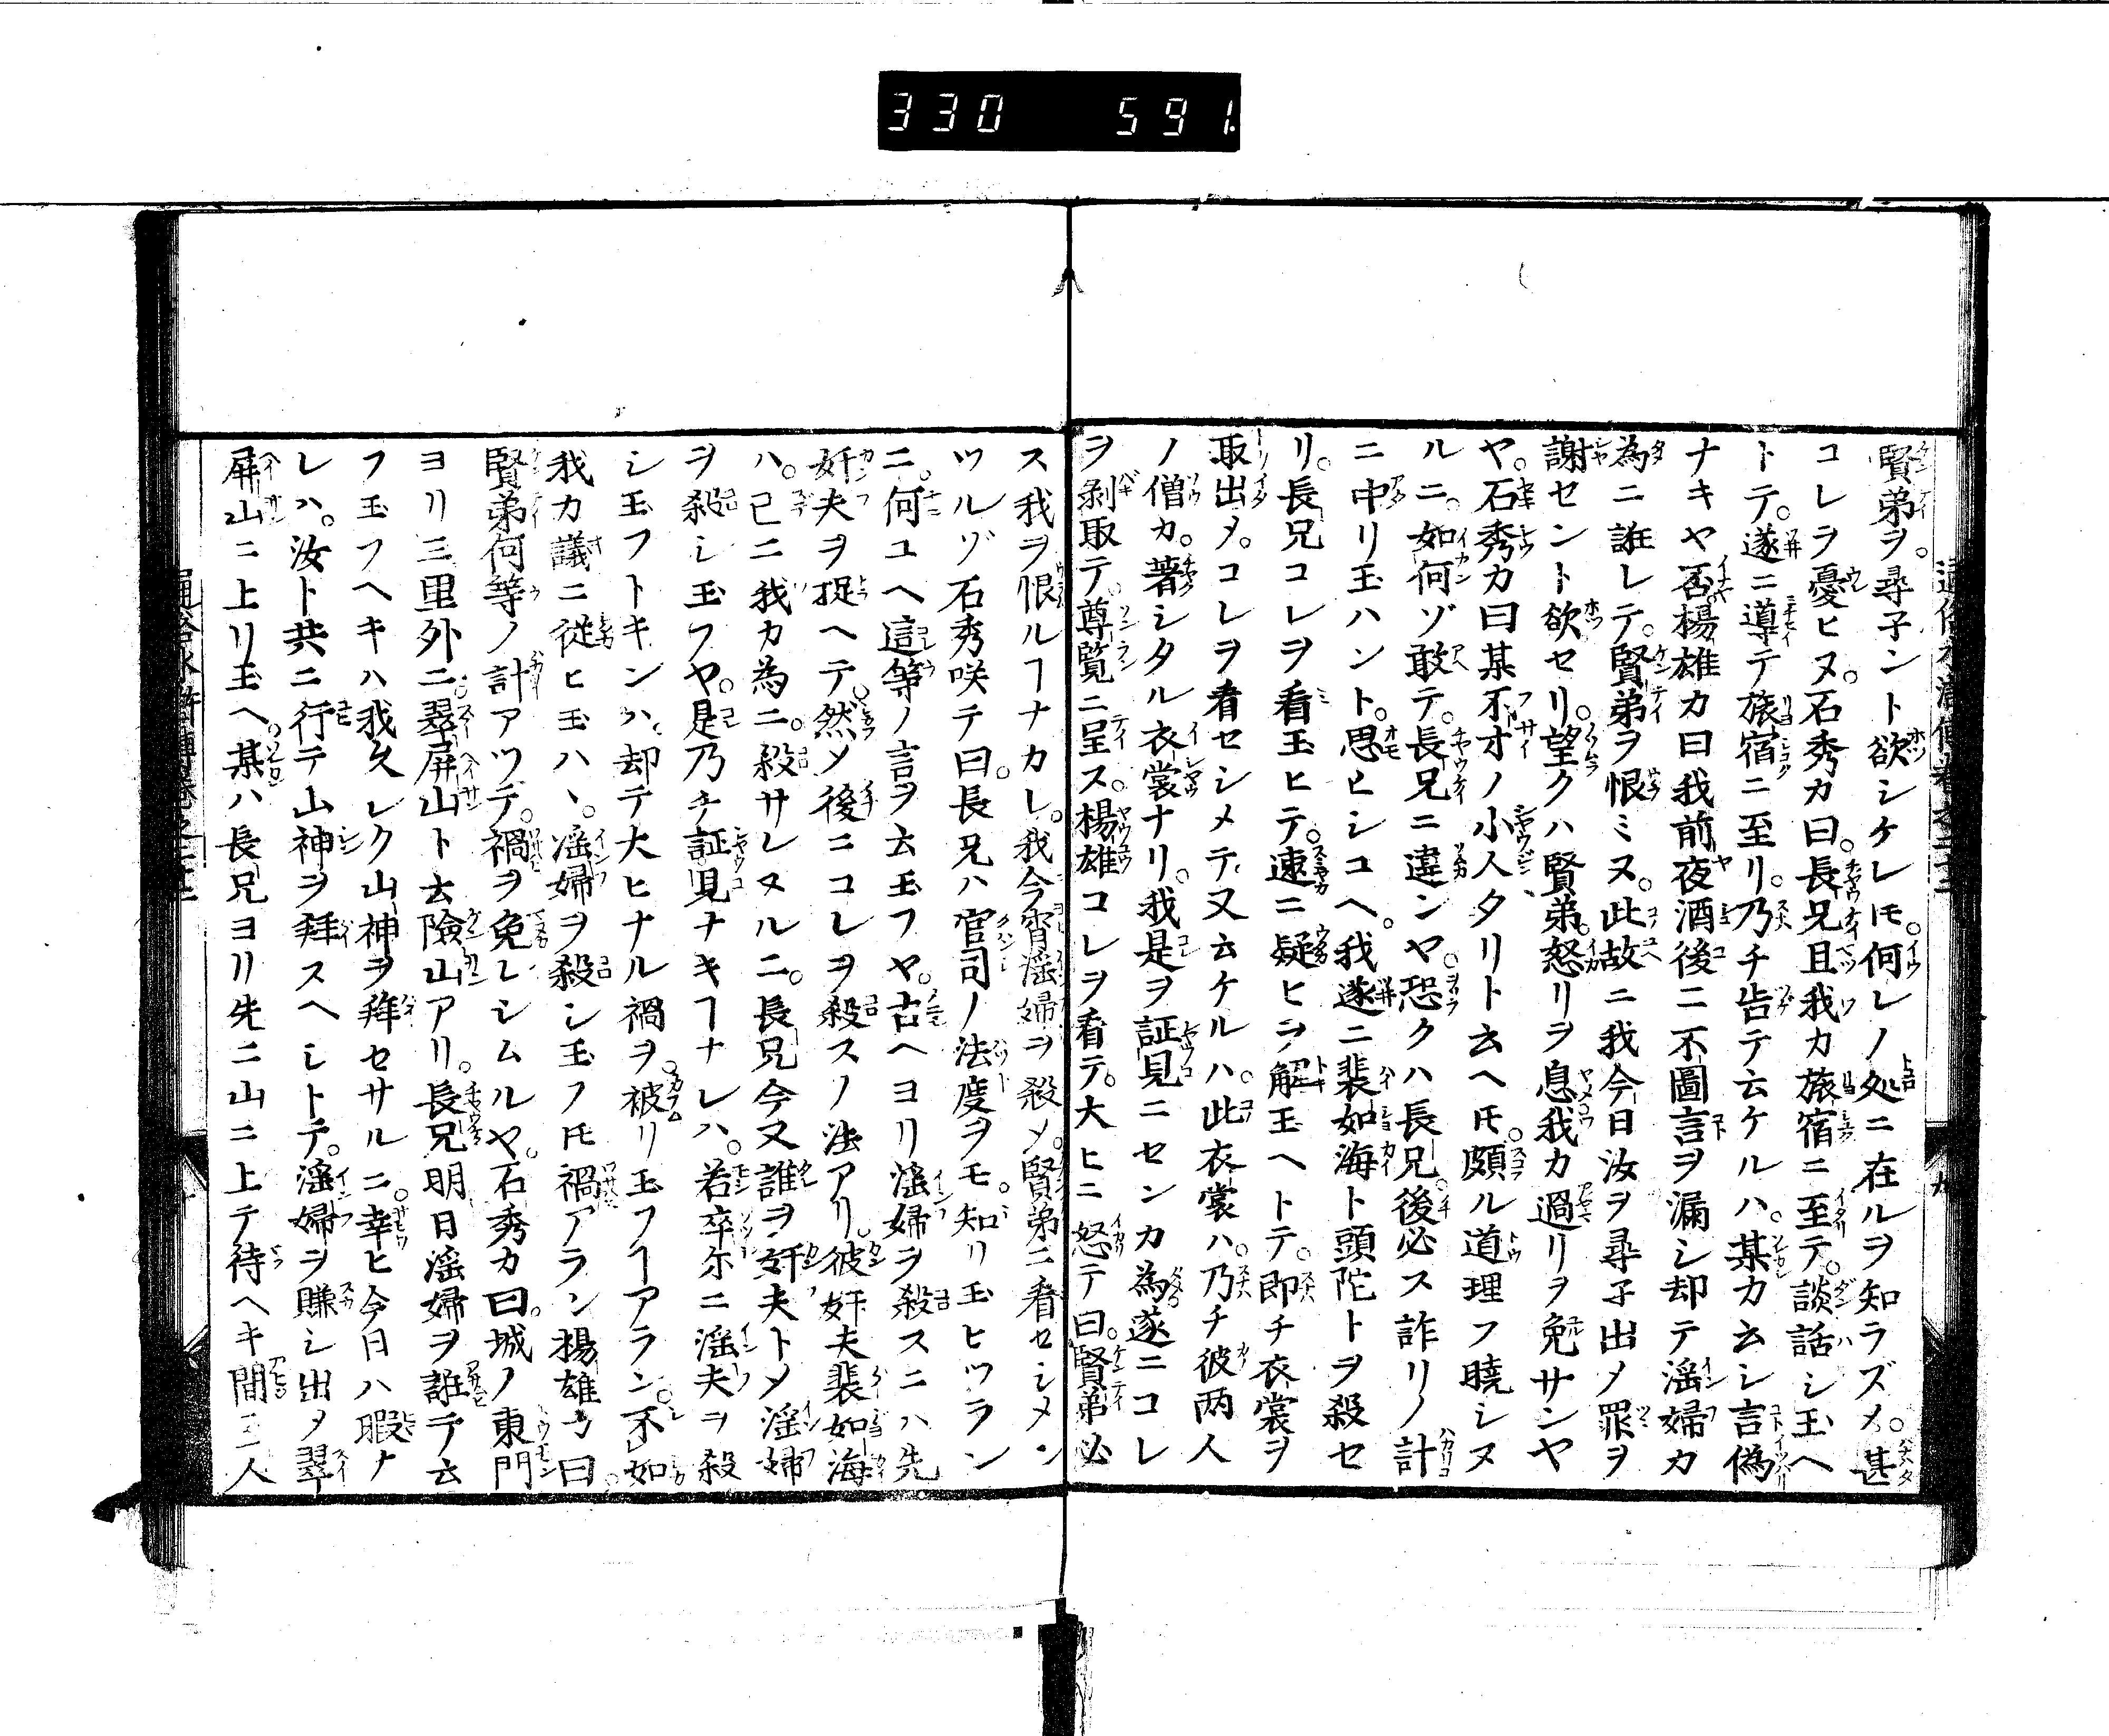 330 591.
賢弟ヲ。尋子ント欲シケレ𪜈。何レノ処ニ在ルヲ知ラズメ。甚
コレヲ憂ヒヌ。石秀カ曰。長兄且我カ旅宿ニ至テ。談話シ玉ヘ
トテ。遂ニ導テ旅宿ニ至リ。乃チ告テ云ケルハ。某カ云シ言偽
ナキヤ否。楊雄カ曰我前夜酒後ニ不圖言ヲ漏シ却テ淫婦カ
為ニ誑レテ。賢弟ヲ恨ミヌ。此故ニ我今日汝ヲ尋子出メ罪ヲ
謝セント欲セリ。望クハ賢弟。怒リヲ息我カ過リヲ免サンヤ
ヤ。石秀カ曰某不才ノ小人タリト云ヘ𪜈。頗ル道理フ曉シヌ
ルニ。如何ゾ敢テ。長兄ニ違ンヤ。恐クハ長兄後必ス詐リノ計
ニ中リ玉ハント。思ヒシユヘ。我遂ニ裴如海ト頭陀トヲ殺セ
リ。長兄コレヲ看玉ヒテ。速ニ疑ヒヲ解玉ヘトテ。即チ衣裳ヲ
取出メ。コレヲ看セシメテ。又云ケルハ。此衣裳ハ。乃チ彼两人
ノ僧カ。著シタル衣裳ナリ。我是ヲ証見ニセンカ為遂ニコレ
ヲ剥取テ。尊覧ニ呈ス。楊雄コレヲ看テ。大ヒニ怒テ曰。賢弟必
ス我ヲ恨ルヿナカレ。我今宵淫婦ヲ殺メ。賢弟ニ看セシメン
ツルゾ石秀咲テ曰。長兄ハ官司ノ法度ヲモ。知リ玉ヒツラン
ニ。何ユヘ這等ノ言ヲ云玉フヤ。古ヘヨリ淫婦ヲ殺スニハ先
奸夫ヲ捉ヘテ。然メ後ニコレヲ殺スノ法アリ。彼奸夫裴如海
ハ。已ニ我カ為ニ。殺サレヌルニ。長兄今又誰ヲ奸夫トメ淫婦
ヲ殺シ玉フヤ。是乃チ証見ナキヿナレハ。若卒尓ニ淫夫ヲ殺
シ玉フトキンハ。却テ大ヒナル禍ヲ被リ玉フヿアラン。不如
我カ議ニ従ヒ玉ハヽ。淫婦ヲ殺シ玉フ𪜈禍アラン楊雄カ曰
賢弟何等ノ計アツテ。禍ヲ免レシムルヤ。石秀カ曰。城ノ東門
ヨリ三里外ニ。翠屏山ト云險山アリ。長兄明日淫婦ヲ誑テ云
フ玉フヘキハ我久レク山神ヲ拜セサルニ。幸ヒ今日ハ暇ナ
レハ。汝ト共ニ行テ山神ヲ拜スヘシトテ。淫婦ヲ賺シ出メ翠
屏山ニ上リ玉ヘ。某ハ長兄ヨリ先ニ山ニ上テ待ヘキ間三人